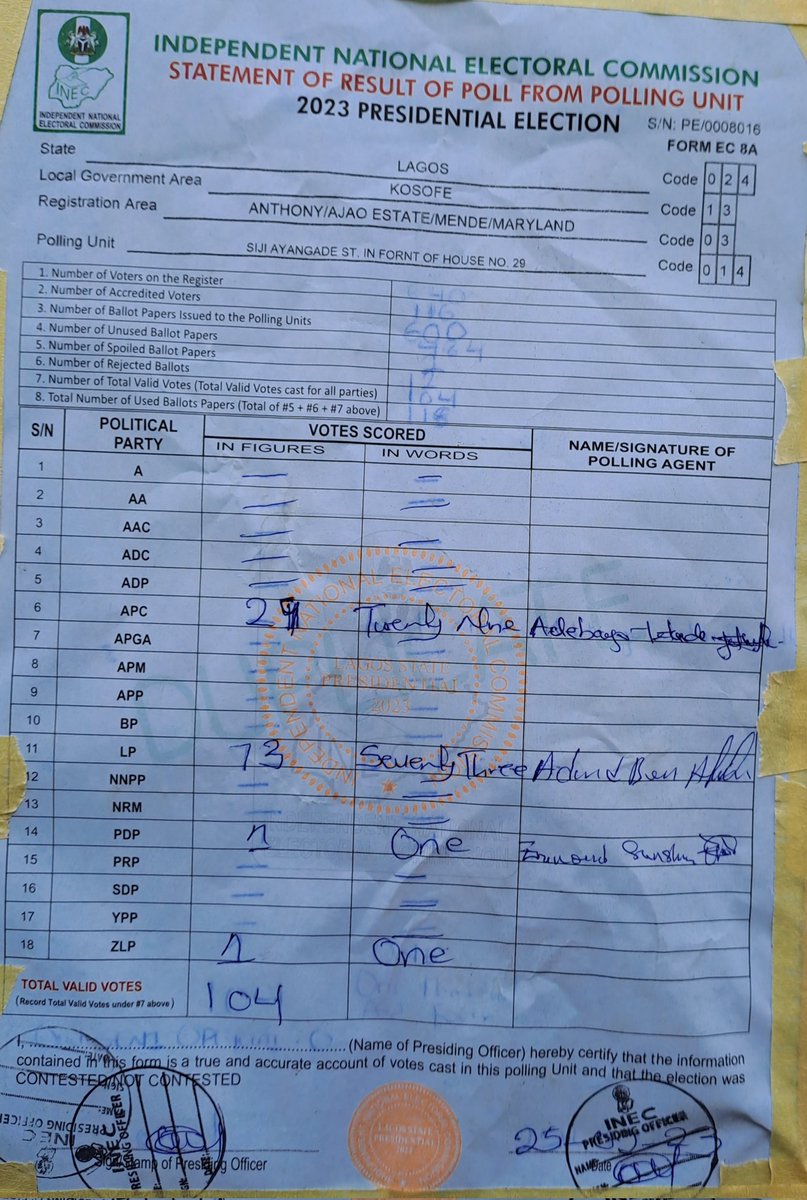 INEC
INDEPENDENT NATIONAL
ELECTORAL COMMISSION
INDEPENDENT NATIONAL ELECTORAL COMMISSION
STATEMENT OF RESULT OF POLL FROM POLLING UNIT
2023 PRESIDENTIAL ELECTION
S/N: PE/0008016
FORM EC 8A
State LAGOS Code 0 2 4
Local Government Area KOSOFE Code 1 3
Registration Area ANTHONY/AJAO ESTATE/MENDE/MARYLAND Code 0 3
Polling Unit SIJI AYANGADE ST. IN FORNT OF HOUSE NO. 29 Code 0 1 4
1. Number of Voters on the Register
2. Number of Accredited Voters 116
3. Number of Ballot Papers Issued to the Polling Units 600
4. Number of Unused Ballot Papers 484
5. Number of Spoiled Ballot Papers
6. Number of Rejected Ballots 12
7. Number of Total Valid Votes (Total Valid Votes cast for all parties) 104
8. Total Number of Used Ballots Papers (Total of #5 + #6 + #7 above) 118
S/N POLITICAL PARTY VOTES SCORED NAME/SIGNATURE OF POLLING AGENT
IN FIGURES IN WORDS
1 A
2 AA
3 AAC
4 ADC
5 ADP
6 APC 29 Twenty Nine Adebayo
7 APGA
8 APM
9 APP
10 BP
11 LP 73 Seventy Three
12 NNPP
13 NRM
14 PDP 1 One
15 PRP
16 SDP
17 YPP
18 ZLP 1 One
TOTAL VALID VOTES 104
(Record Total Valid Votes under #7 above)
INDEPENDENT NATIONAL ELECTORAL COMMISSION
LAGOS STATE
PRESIDENTIAL
2023
I, (Name of Presiding Officer) hereby certify that the information
contained in this form is a true and accurate account of votes cast in this polling Unit and that the election was
CONTESTED/NOT CONTESTED
INEC
PRESIDING OFFICER
INEC
PRESIDING OFFICER
LAGOS STATE
PRESIDENTIAL
2023
INEC
PRESIDIG OFFICER
NAME
Date 25
Stamp of Presiding Officer